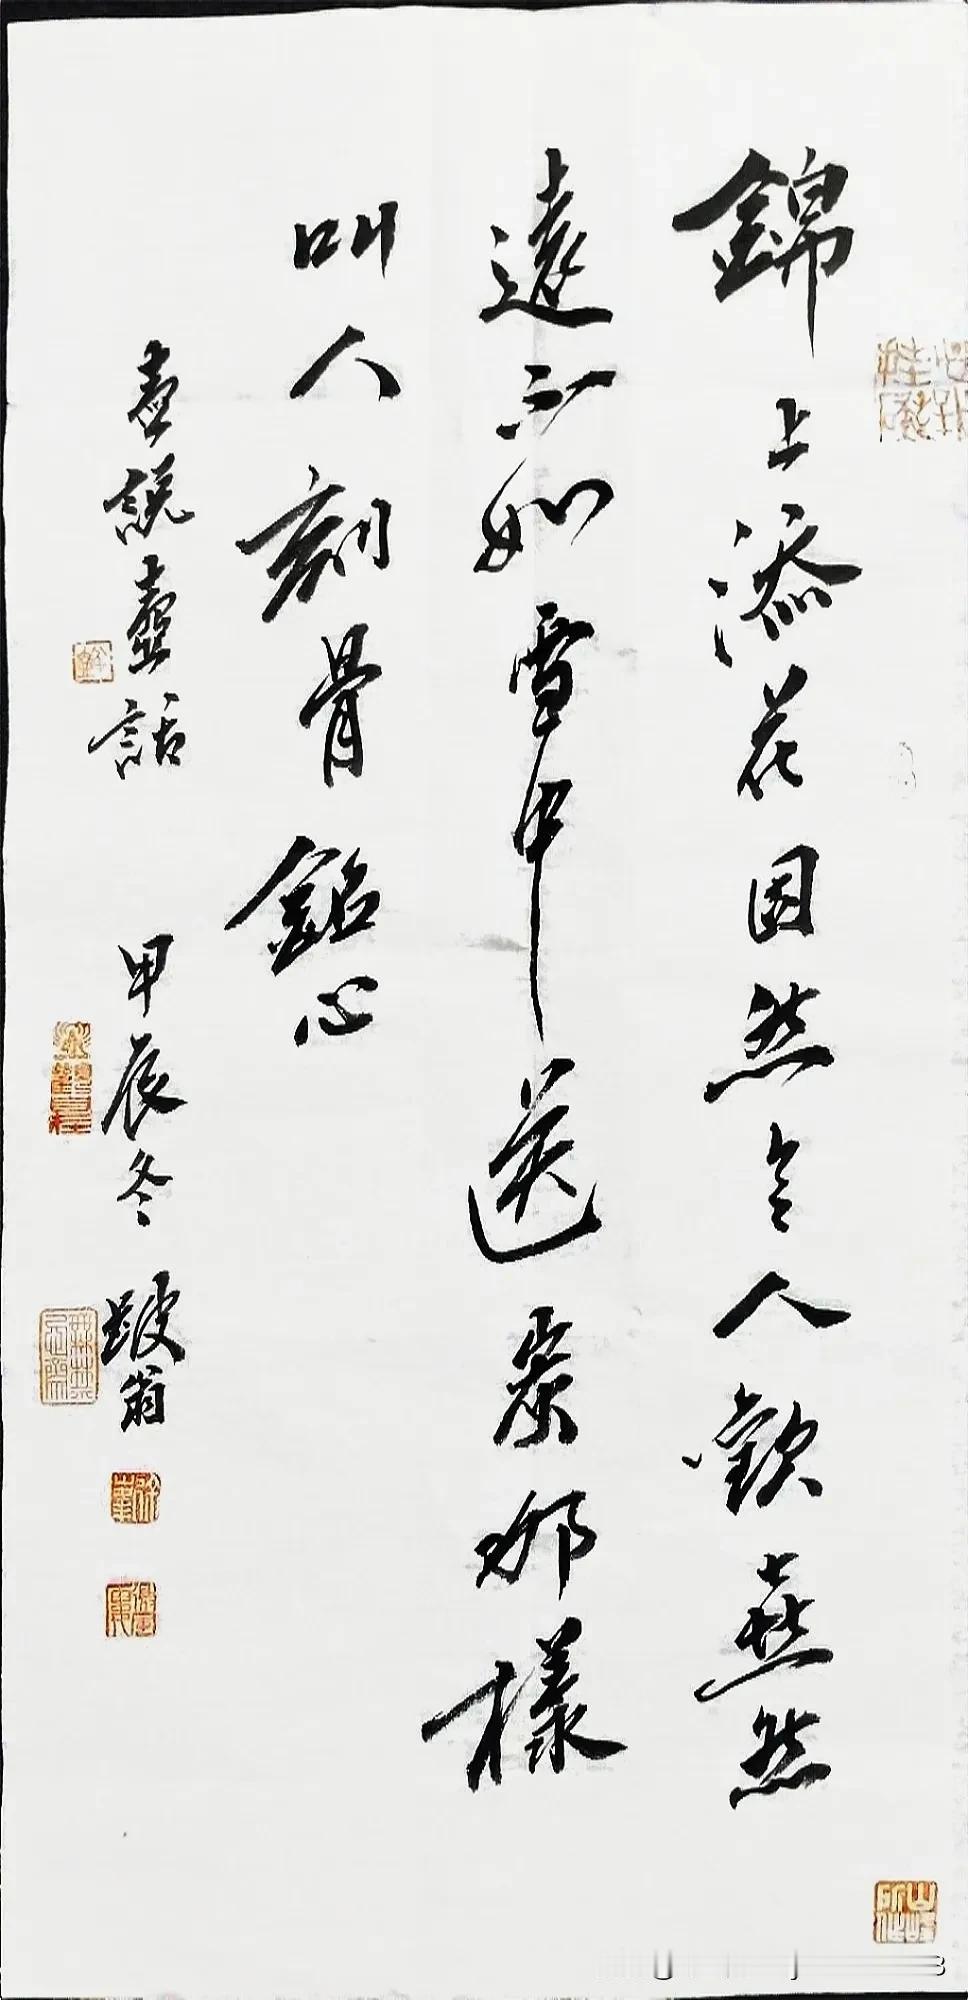 錦上添花固然令人歡喜然
遠不如雪中送炭那樣
叫人刻骨銘心
壺說壺話 甲辰冬 跛翁